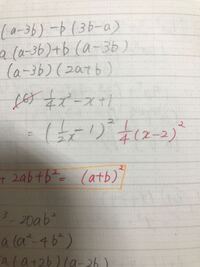 (a-3b)-b(3b-a)
a(a-3b)+b(a-3b)
(a-3b)(2a+b)
(6) 1/4x²-x+1
= (1/2x-1)² 1/4(x-2)²
+ 2ab+b² = (a+b)²
³-20ab²
a(a²-4b²)
a(a+2b)(a-2b)